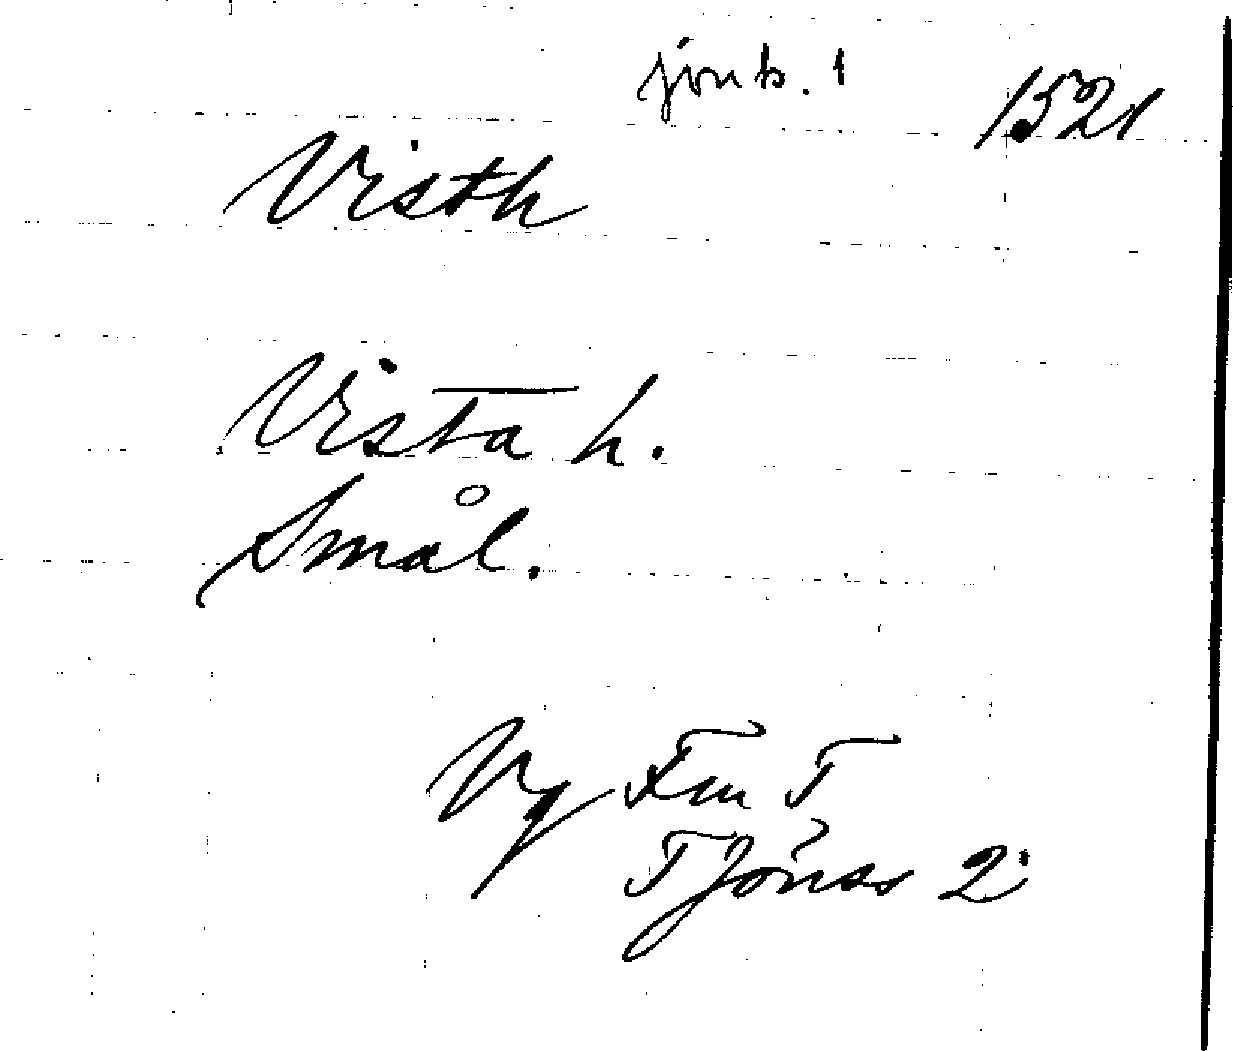 jönk. 1
1521
Visth
Vista h.
Smål.
Vg Fm T
T Jönss 2